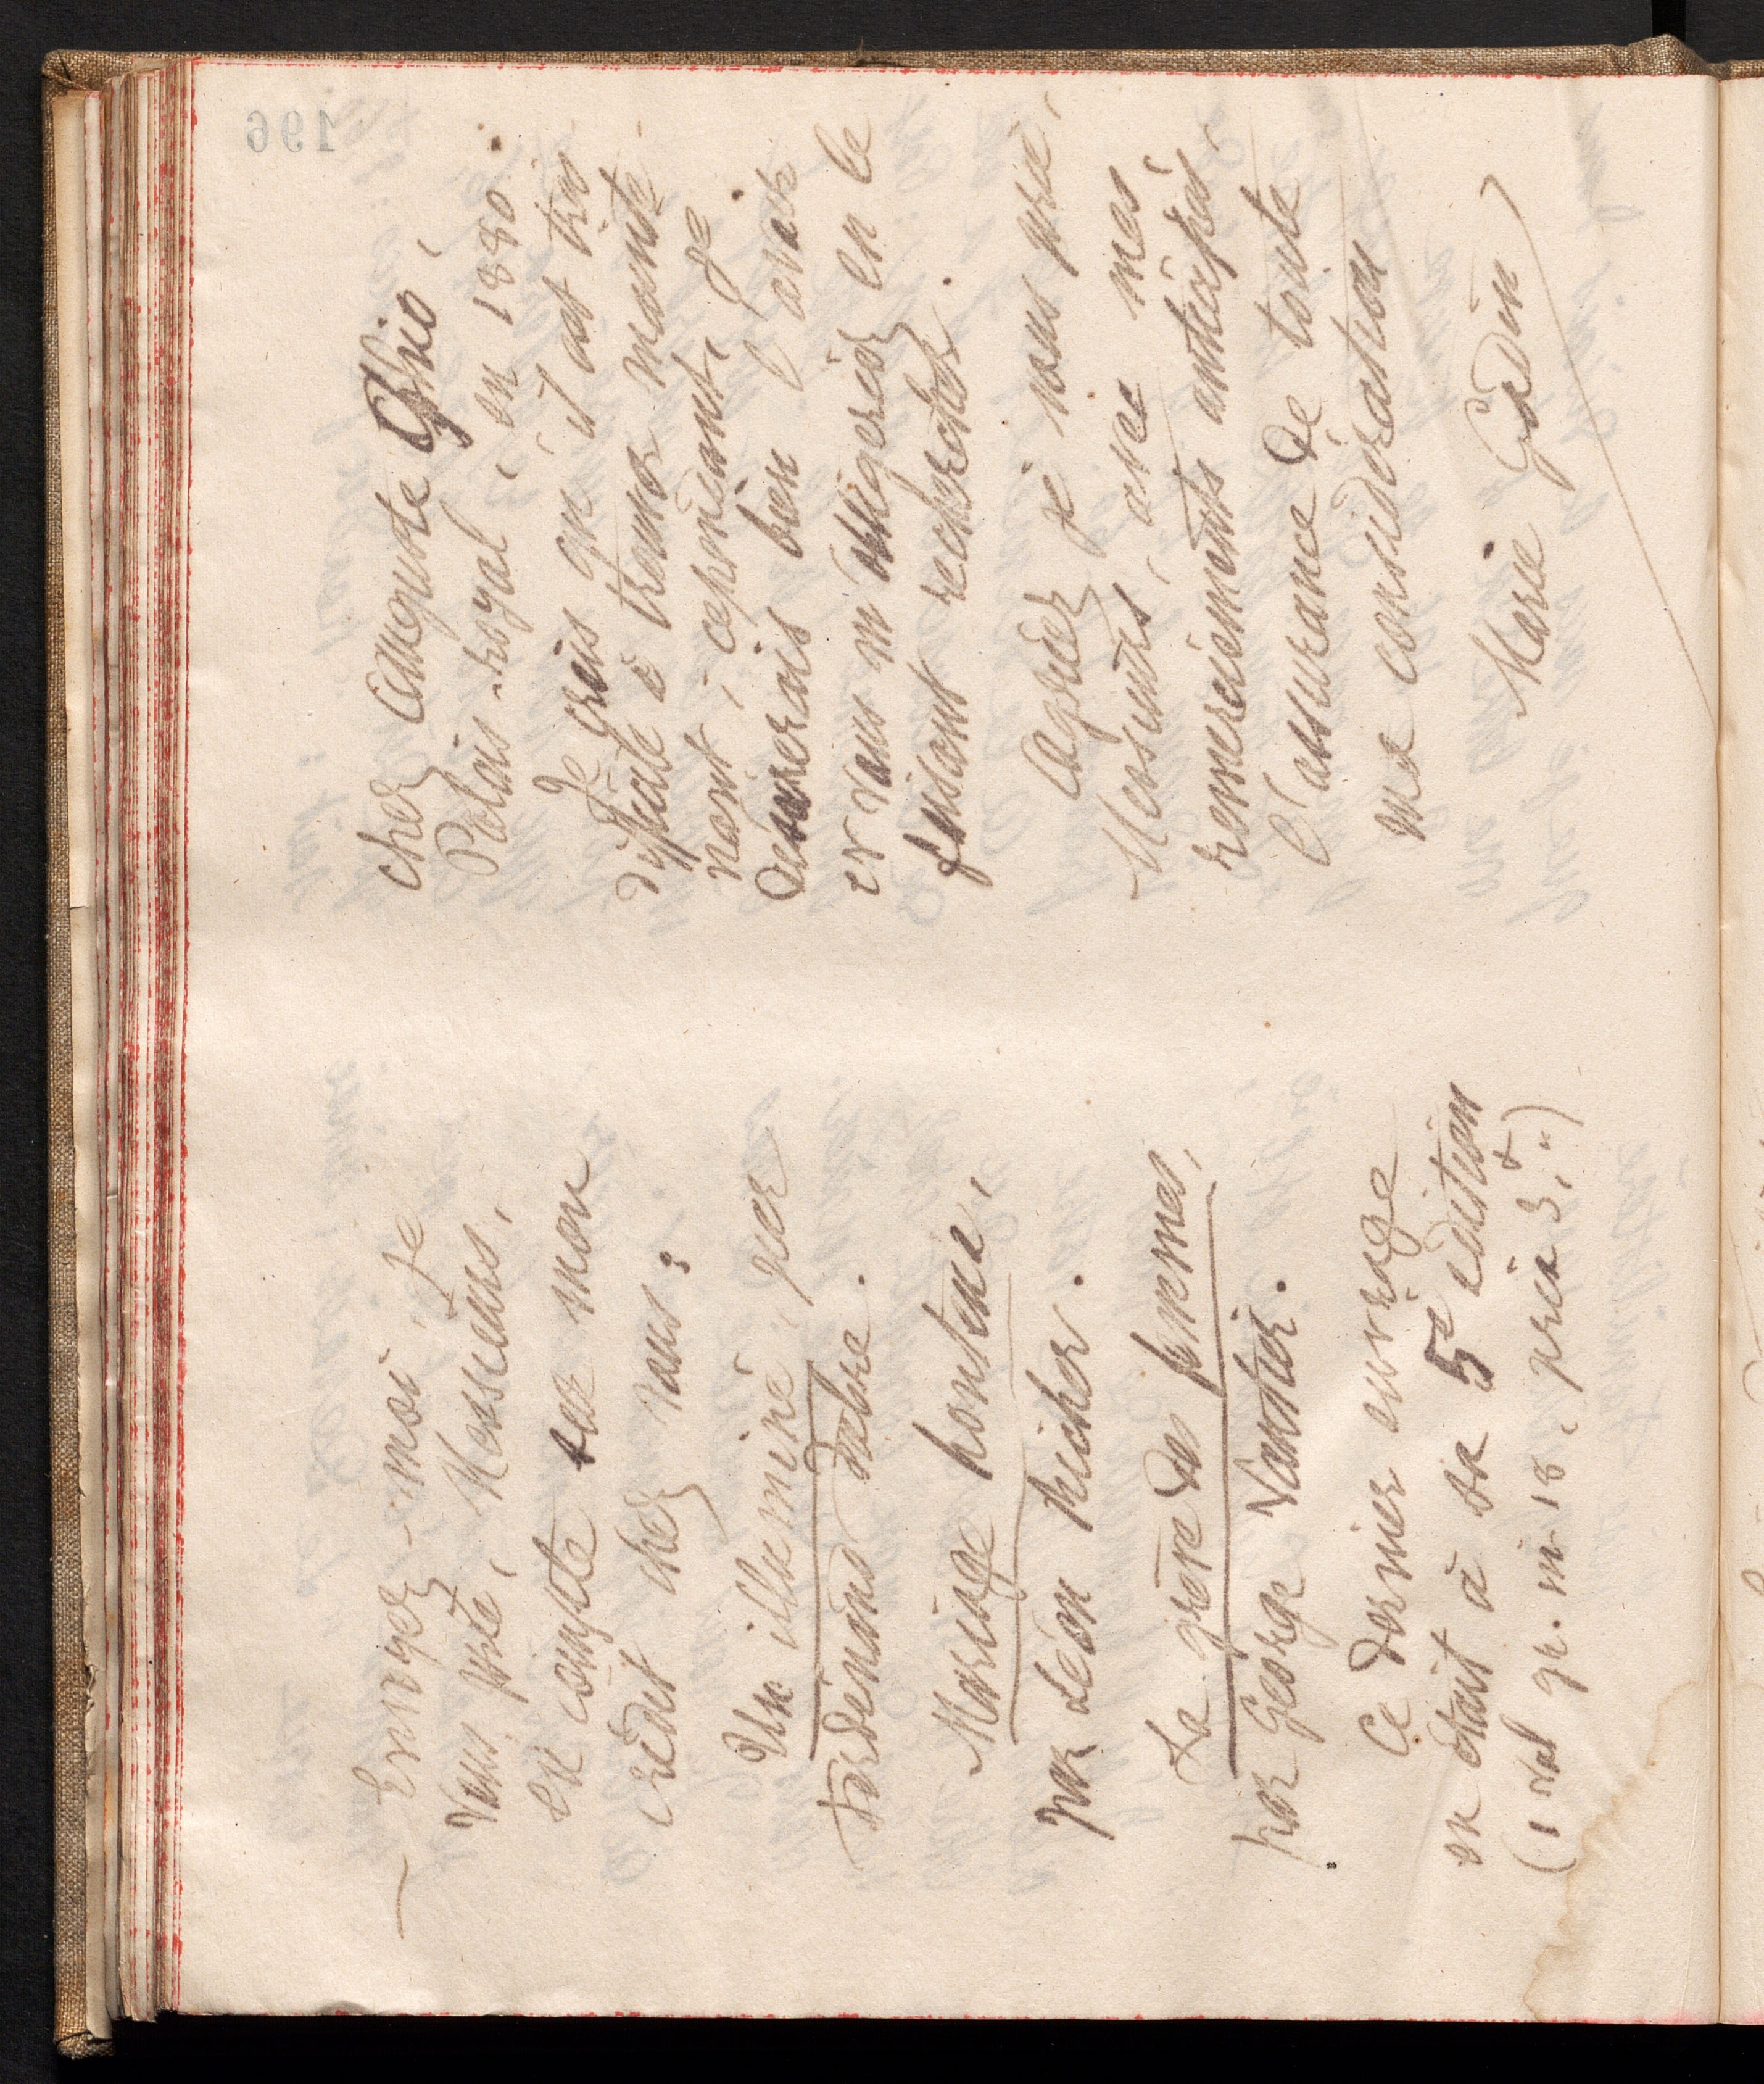 Envoyez-moi, je
vous prie, Messieurs,
en compte sur mon
crédit chez vous :
Un illuminé, par
Ferdinand Fabre.
Mariage honteux,
par Léon Richer.
La grève des femmes,
par George Vautier.
Ce dernier ouvrage
en était à sa 5e édition
(1 vol gr. in-18, prix 3f. ")
chez Auguste Ghio,
Palais-royal, en 1880.
Je crois qu'il est très
difficile à trouver mainte
nant ; cependant, je
désirerais bien l'avoir
et vous m'obligeriez en le
faisant rechercher.
Agréez je vous prie,
Messieurs, avec mes
remerciements anticipés,
l'assurance de toute
ma considération
Marie Godin
196